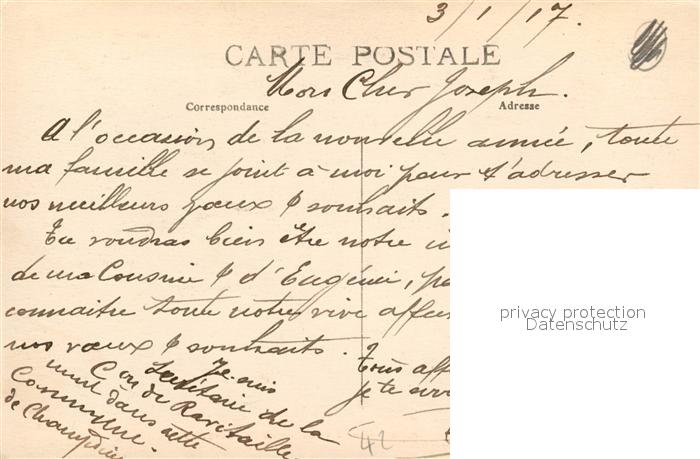 3/1/17.
CARTE POSTALE
Mon Cher Joseph.
Correspondance
Adresse
A l'occasion de la nouvelle année, toute
ma famille se joint à moi pour t'adresser
nos meilleurs vœux & souhaits.
Tu voudras bien être notre
de ma Cousine & d'Eugénie,
connaitre toute notre vive
nos vœux & souhaits.
Tous
je te
Je suis
Secrétaire de la
Con de Ravitaille
ment dans cette
Commune.
de
42
privacy protection
Datenschutz